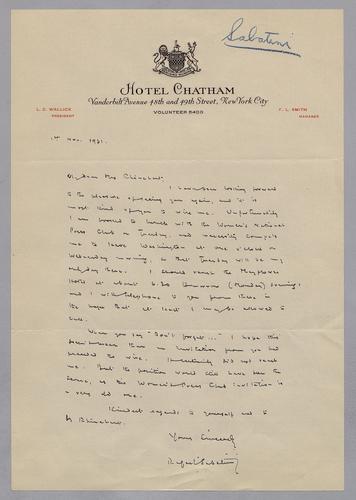 Sabatini
HOTEL CHATHAM
Vanderbilt Avenue 48th and 49th Street, New York City
VOLUNTEER 5400
L. D. WALLICK
PRESIDENT
F. L. SMITH
MANAGER
1st Nov. 1931.
My dear Mrs
I have been looking forward
to the pleasure of seeing you again, and it is
most kind of you to wire me. Unfortunately
I am pledged to lunch with the Women's National
Press Club on Tuesday, and necessity compels
me to leave Washington at one o'clock on
Wednesday morning, so that Tuesday will be my
only day there. I should reach the Mayflower
Hotel at about 6.30 tomorrow (Monday) evening,
and I will telephone to you from there in
the hope that at least I may be allowed to
call.
When you say "Don't forget..." I hope this
does not mean that an invitation from you had
preceded the wire. did not reach
me. But the position would still have been the
same, as the Women's Press Club invitation is
a very old one.
Kindest regards to yourself and to
Yours sincerely
Rafael Sabatini